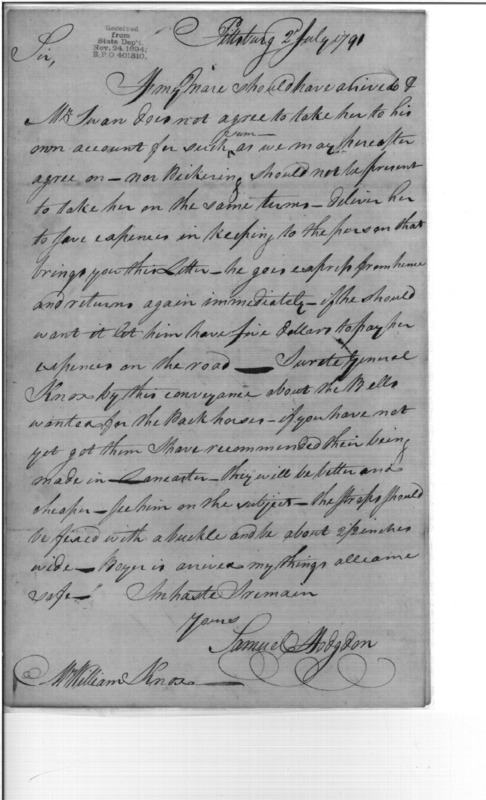 Received
from
State Dep't.
Nov. 24, 1894;
R.P.O 401810.
Pittsburg 2d July 1791
Sir,
If my mare should have arrived &
Mr. Swan does not agree to take her to his
own account for such sum as we may hereafter
agree on — nor Bickering should not be present
to take her on the same terms — deliver her
to save expences in keeping to the person that
brings you this Letter — he goes express from hence
and returns again immediately — if he should
want it let him have five dollars to pay her
expences on the road — I wrote General
Knox by this conveyance about the Bells
wanted for the Pack horses — if you have not
yet got them I have recommended their being
made in Lancaster — they will be better and
cheaper — see him on the subject — the straps should
be fixed with a buckle and be about 2 1/2 inches
wide — Boyer is arrived my things all came
safe —
In haste I remain
Yours
Samuel Hodgdon
Mr. William Knox —